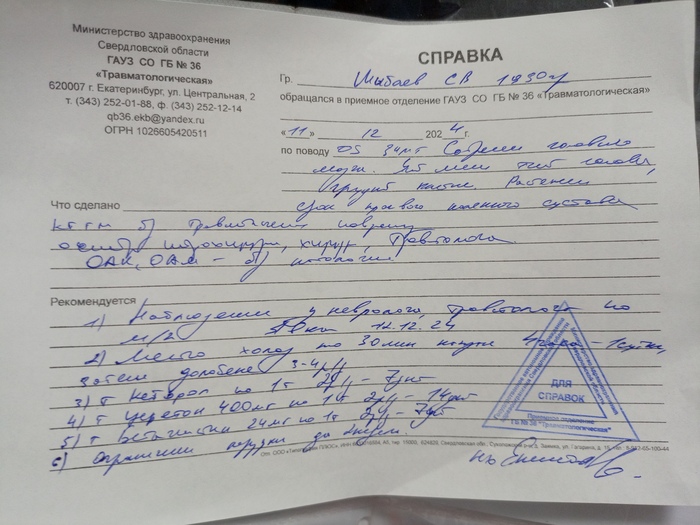 Министерство здравоохранения
Свердловской области
ГАУЗ СО ГБ № 36
«Травматологическая»
620007 г. Екатеринбург, ул. Центральная, 2
т. (343) 252-01-88, ф. (343) 252-12-14
qb36.ekb@yandex.ru
ОГРН 1026605420511
СПРАВКА
Гр. СВ 1930г
обращался в приемное отделение ГАУЗ СО ГБ № 36 «Травматологическая»
«11» 12 2024г.
по поводу DS ЗЧМТ Сотрясение головного
мозга. головы,
грудной клетки. Растяжение
Что сделано связок правого коленного сустава
КТ ГМ б/ травматических повреждений
осмотр нейрохирурга, хирурга, травматолога
ОАК, ОАМ - б/ патологии
Рекомендуется 1) Наблюдение у невролога, травматолога по
м/ж явка 12.12.24
2) Местно холод по 30 мин каждые 4 часа - 1 сутки,
затем 3-4 р/д
3) т Кеторол по 1т 2р/д - 7дн
4) т Церетон 400мг по 1т 2р/д - 14дн
5) т Бетагистин 24мг по 1т 2р/д - 7дн
6) Ограничение нагрузки до
ДЛЯ
СПРАВОК
Приемное отделение
ГБ № 36 "Травматологическая"